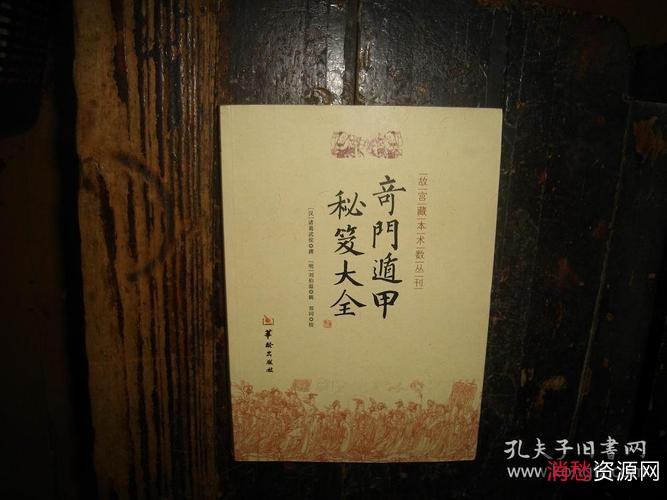 故宫藏本术数丛刊
奇門遁甲
秘笈大全
[汉]诸葛武侯◎撰 [明]刘伯温◎辑 郑同◎校
華龄出版社
孔夫子旧书网
消愁资源网